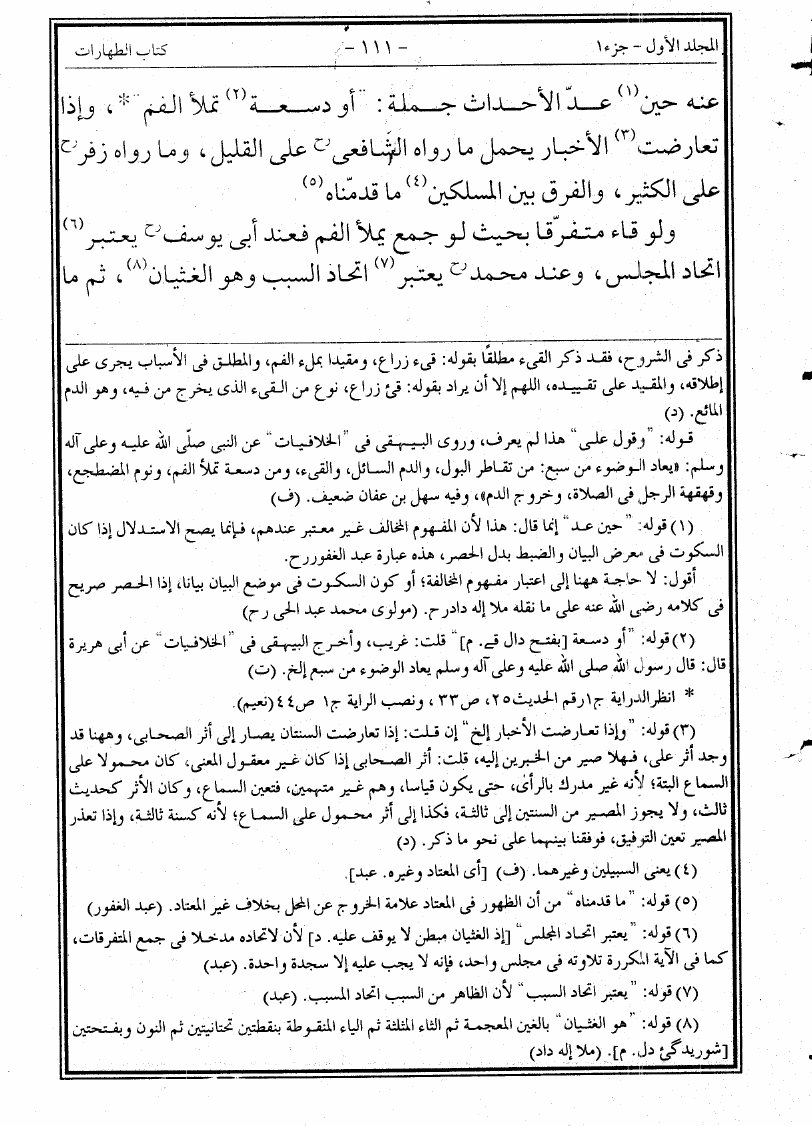 المجلد الأول – جزء ١ – ١١١ – كتاب الطهارات
عنه حين(١) عدّ الأحداث جملة: "أو دسعة(٢) تملأ الفم"*، وإذا
تعارضت(٣) الأخبار يحمل ما رواه الشافعى رح على القليل، وما رواه زفر رح
على الكثير، والفرق بين المسلكين(٤) ما قدمناه(٥)
ولو قاء متفرّقا بحيث لو جمع يملأ الفم فعند أبى يوسف رح يعتبر(٦)
اتحاد المجلس، وعند محمد رح يعتبر(٧) اتحاد السبب وهو الغثيان(٨)، ثم ما
ذكر فى الشروح، فقد ذكر القىء مطلقًا بقوله: قىء زراع، ومقيدا بملء الفم، والمطلق فى الأسباب يجرى على
إطلاقه، والمقيد على تقييده، اللهم إلا أن يراد بقوله: قئ زراع، نوع من القىء الذى يخرج من فيه، وهو الدم
المائع. (د)
قوله: "وقول على" هذا لم يعرف، وروى البيهقى فى "الخلافيات" عن النبى صلّى الله عليه وعلى آله
وسلم: «يعاد الوضوء من سبع: من تقاطر البول، والدم السائل، والقىء، ومن دسعة تملأ الفم، ونوم المضطجع،
وقهقهة الرجل فى الصلاة، وخروج الدم»، وفيه سهل بن عفان ضعيف. (ف)
(١) قوله: "حين عد" إنما قال: هذا لأن المفهوم المخالف غير معتبر عندهم، فإنما يصح الاستدلال إذا كان
السكوت فى معرض البيان والضبط بدل الحصر، هذه عبارة عبد الغفور رح.
أقول: لا حاجة ههنا إلى اعتبار مفهوم المخالفة؛ أو كون السكوت فى موضع البيان بيانا، إذا الحصر صريح
فى كلامه رضى الله عنه على ما نقله ملا إله داد رح. (مولوى محمد عبد الحى رح)
(٢) قوله: "أو دسعة [بفتح دال قے. م]" قلت: غريب، وأخرج البيهقى فى "الخلافيات" عن أبى هريرة
قال: قال رسول الله صلى الله عليه وعلى آله وسلم يعاد الوضوء من سبع إلخ. (ت)
* انظر الدراية ج١ رقم الحديث ٢٥، ص ٣٣، ونصب الراية ج١ ص ٤٤ (نعيم).
(٣) قوله: "وإذا تعارضت الأخبار إلخ" إن قلت: إذا تعارضت السنتان يصار إلى أثر الصحابى، وههنا قد
وجد أثر على، فهلا صير من الخبرين إليه، قلت: أثر الصحابى إذا كان غير معقول المعنى، كان محمولا على
السماع البتة؛ لأنه غير مدرك بالرأى، حتى يكون قياسا، وهم غير متهمين، فتعين السماع، وكان الأثر كحديث
ثالث، ولا يجوز المصير من السنتين إلى ثالثة، فكذا إلى أثر محمول على السماع؛ لأنه كسنة ثالثة، وإذا تعذر
المصير تعين التوفيق، فوفقنا بينهما على نحو ما ذكر. (د)
(٤) يعنى السبيلين وغيرهما. (ف) [أى المعتاد وغيره. عبد].
(٥) قوله: "ما قدمناه" من أن الظهور فى المعتاد علامة الخروج عن المحل بخلاف غير المعتاد. (عبد الغفور)
(٦) قوله: "يعتبر اتحاد المجلس" [إذ الغثيان مبطن لا يوقف عليه. د] لأن لاتحاده مدخلا فى جمع المتفرقات،
كما فى الآية المكررة تلاوته فى مجلس واحد، فإنه لا يجب عليه إلا سجدة واحدة. (عبد)
(٧) قوله: "يعتبر اتحاد السبب" لأن الظاهر من السبب اتحاد المسبب. (عبد)
(٨) قوله: "هو الغثيان" بالغين المعجمة ثم الثاء المثلثة ثم الياء المنقوطة بنقطتين تحتانيتين ثم النون وبفتحتين
[شوريدگئ دل. م]. (ملا إله داد)